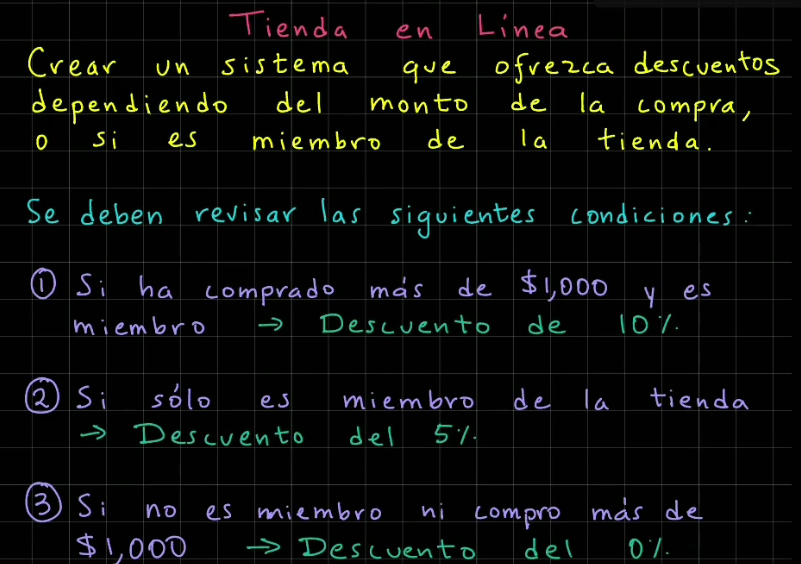 Tienda en Línea
Crear un sistema que ofrezca descuentos
dependiendo del monto de la compra,
o si es miembro de la tienda.
Se deben revisar las siguientes condiciones:
① Si ha comprado más de $1,000 y es
miembro → Descuento de 10%.
② Si sólo es miembro de la tienda
→ Descuento del 5%.
③ Si no es miembro ni compro más de
$1,000 → Descuento del 0%.